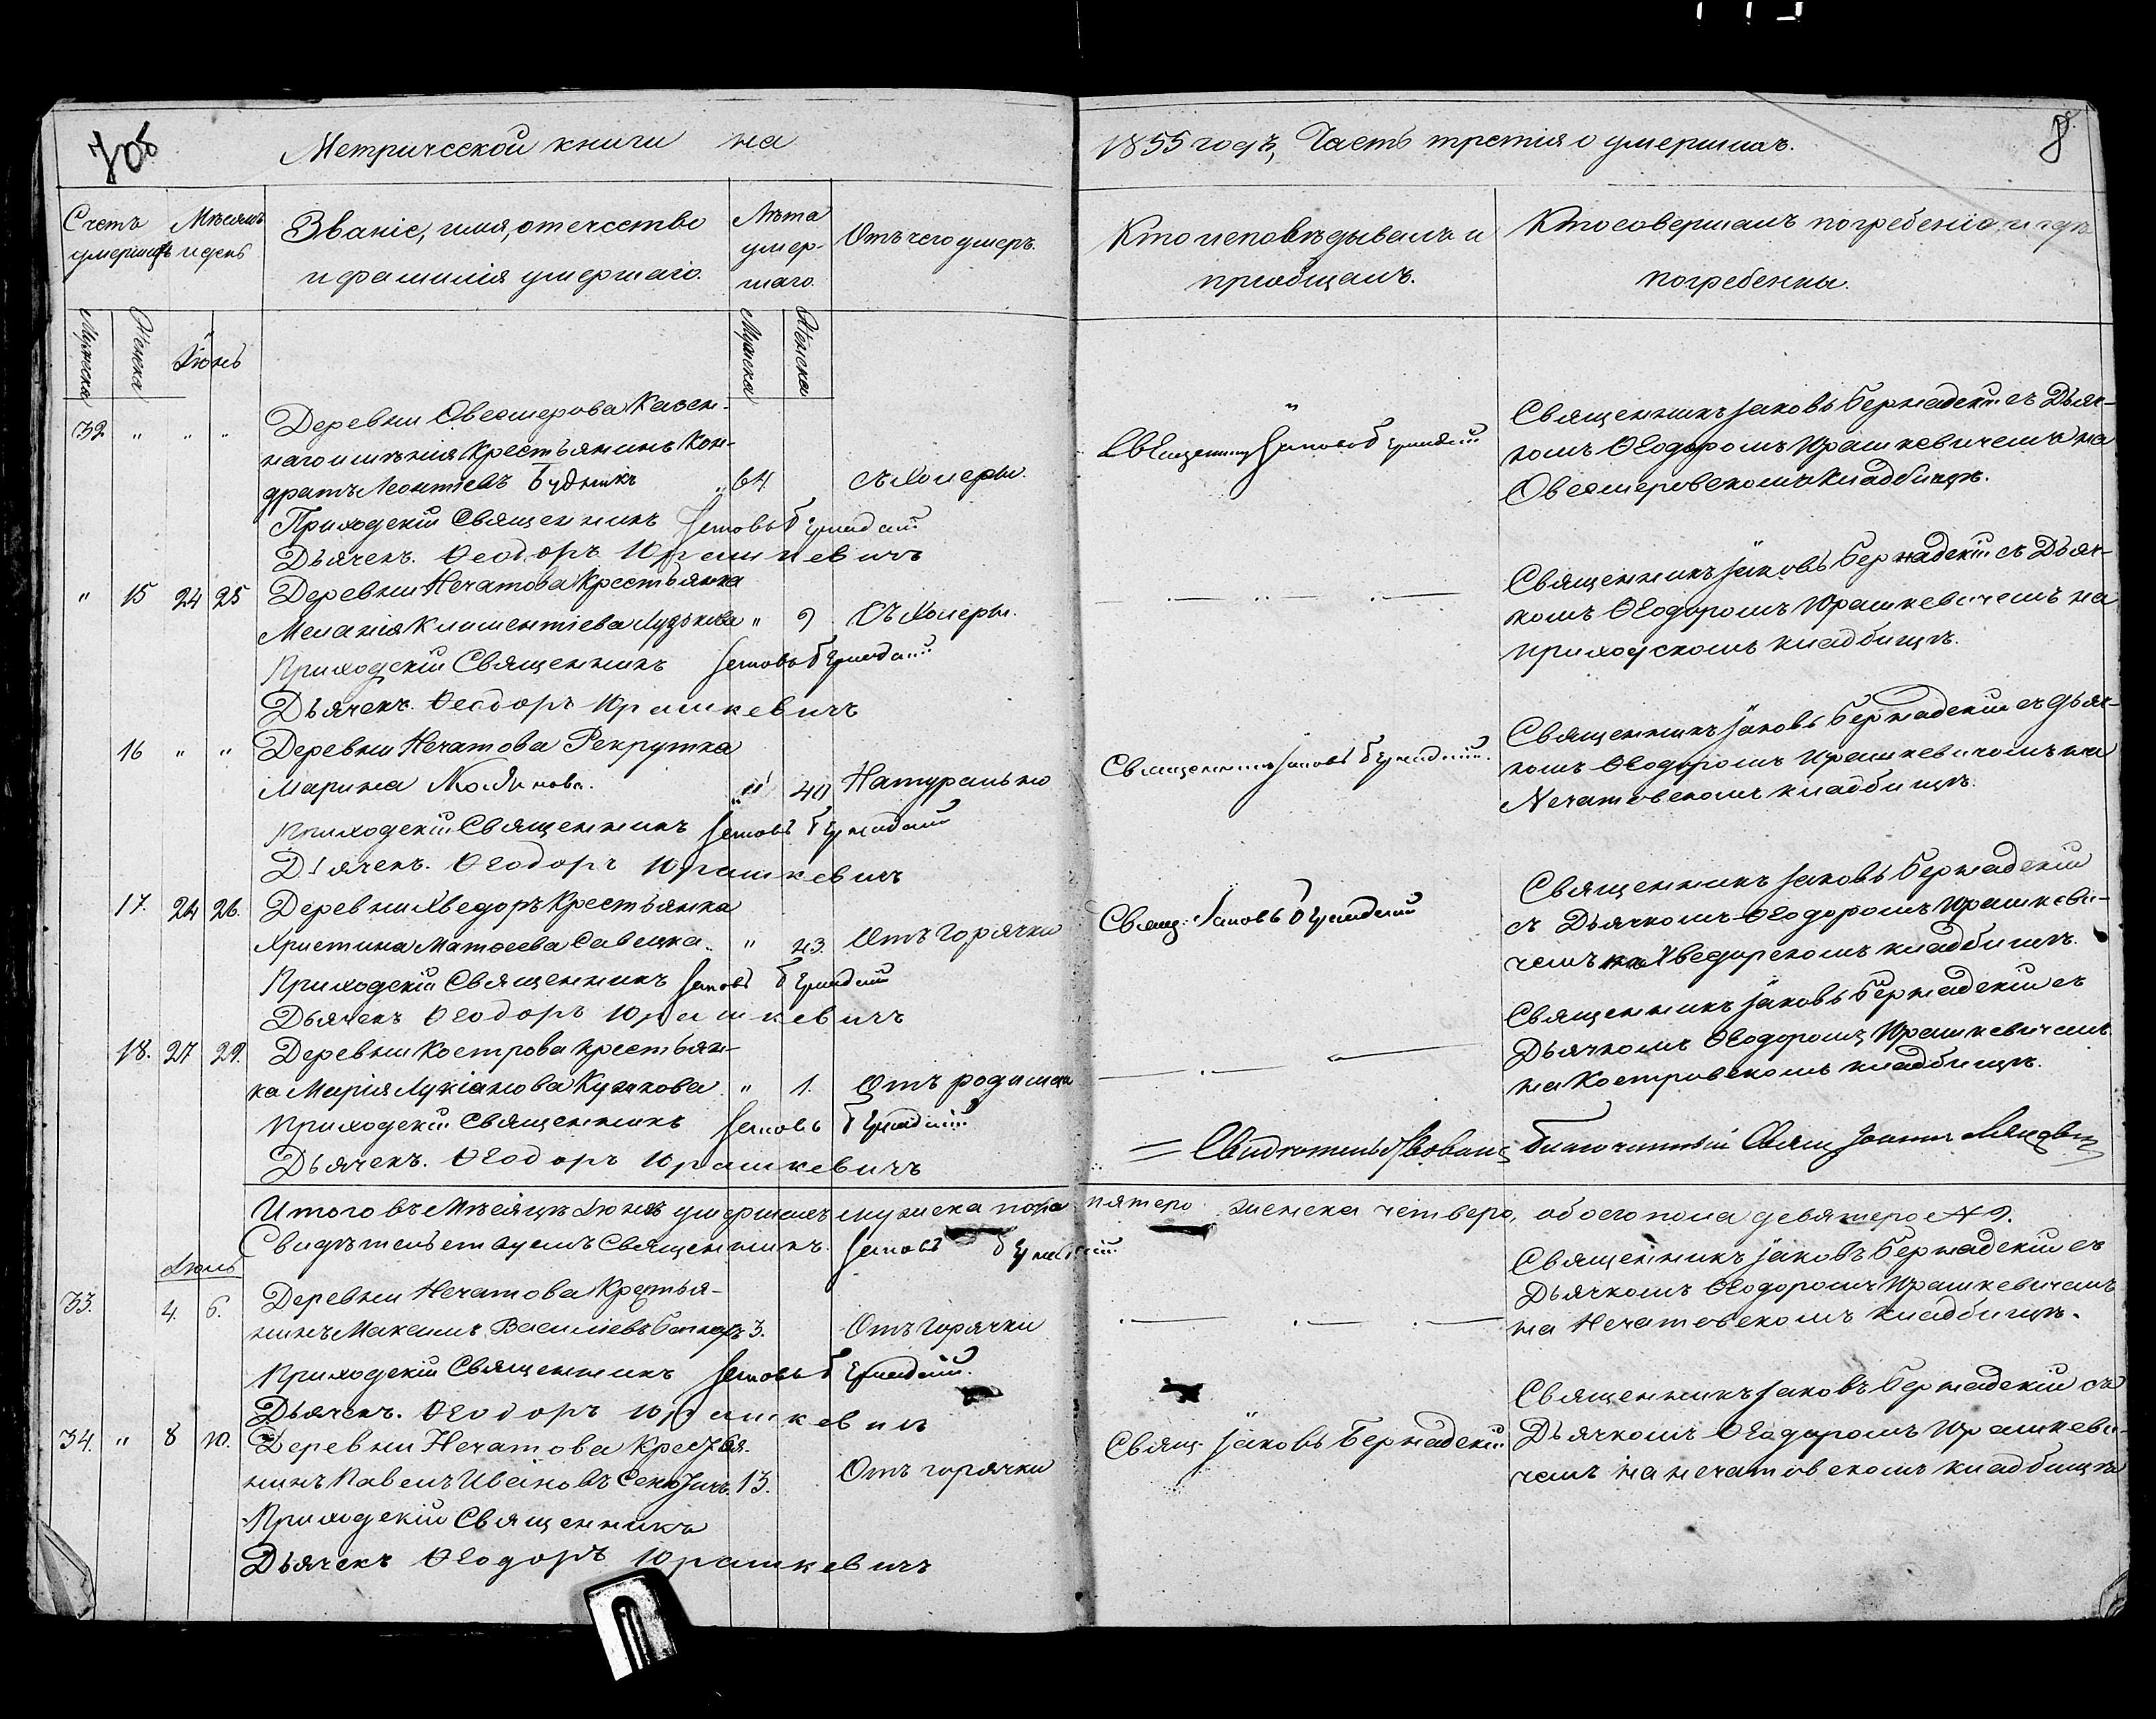 706
Метрической книги на
1855 годъ, Часть третія о умершихъ.
8
Счетъ умершихъ
Мѣсяцъ и день
Званіе, имя, отчество
и фамилія умершаго.
Лѣта
умер-
шаго.
Отъ чего умеръ.
Кто исповѣдывалъ и
пріобщалъ.
Кто совершалъ погребеніе и гдѣ
погребены.
Мужеска
Женска
Іюнь
Мужеска
Женска
32 " " "
Деревни Овсемерова Казен-
наго имѣнія Крестьянинъ Кон-
дратъ Леонтіевъ Будникъ " 64 съ Холеры.
Приходскій Священникъ Іаковъ Бернадскій
Дьячекъ. Ѳеодоръ Юрашкевичъ
Священникъ Іаковъ Бернадскій
Священникъ Іаковъ Бернадскій съ Дьяч-
комъ Ѳеодоромъ Юрашкевичемъ на
Овсемеровскомъ кладбищѣ.
" 15 24 25 Деревни Нечатова Крестьянка
Меланія Климентіева " 9 Съ Холеры.
Приходскій Священникъ Іаковъ Бернадскій
Дьячекъ. Ѳеодоръ Юрашкевичъ
Священникъ Іаковъ Бернадскій съ Дьяч-
комъ Ѳеодоромъ Юрашкевичемъ на
приходскомъ кладбищѣ.
16 " " Деревни Нечатова Рекрутка
Марина " 40 Натурально
Приходскій Священникъ Іаковъ Бернадскій
Дьячекъ. Ѳеодоръ Юрашкевичъ
Священникъ Іаковъ Бернадскій.
Священникъ Іаковъ Бернадскій съ дьяч-
комъ Ѳеодоромъ Юрашкевичемъ на
Нечатовскомъ кладбищѣ.
17. 24 26. Деревни Хведоръ Крестьянка
Христина Матѳеева Савецка. " 43 Отъ Горячки
Приходскій Священникъ Іаковъ Бернадскій
Дьячекъ Ѳеодоръ Юрашкевичъ
Свящ: Іаковъ Бернадскій
Священникъ Іаковъ Бернадскій
съ Дьячкомъ Ѳеодоромъ Юрашкеви-
чемъ на Хведорскомъ кладбищѣ.
18. 27 29. Деревни Кострова Крестьян-
ка Марія Лукіанова " 1. Отъ родимца
Приходскій Священникъ Іаковъ Бернадскій
Дьячекъ. Ѳеодоръ Юрашкевичъ
Священникъ Іаковъ Бернадскій съ
Дьячкомъ Ѳеодоромъ Юрашкевичемъ
на Костровскомъ кладбищѣ.
Свидѣтельствовалъ Благочинный Свящ Іоаннъ
Итого въ Мѣсяцѣ Іюнѣ умершихъ мужеска пола пятеро женска четверо, обоего пола девятеро № 9.
Свидѣтельствуемъ Священникъ. Іаковъ Бернадскій
Іюль
33. 4. 6. Деревни Нечатова Крестья-
нинъ Максимъ Васильевъ 3. Отъ Горячки
Приходскій Священникъ Іаковъ Бернадскій.
Дьячекъ. Ѳеодоръ Юрашкевичъ
Священникъ Іаковъ Бернадскій съ
Дьячкомъ Ѳеодоромъ Юрашкевичемъ
на Нечатовскомъ кладбищѣ.
34. " 8 10. Деревни Нечатова Крестья.
нинъ Павелъ Ивановъ 13. Отъ горячки
Приходскій Священникъ
Дьячекъ Ѳеодоръ Юрашкевичъ
Свящ. Іаковъ Бернадскій
Священникъ Іаковъ Бернадскій съ
Дьячкомъ Ѳеодоромъ Юрашкеви-
чемъ на нечатовскомъ кладбищѣ